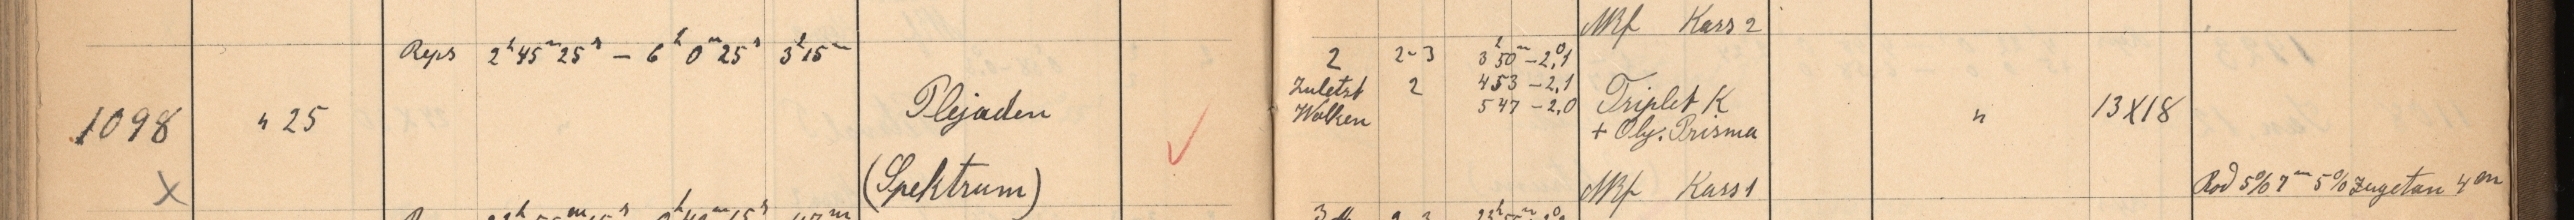 MRf Kass 2
Reps 2ʰ45ᵐ25ˢ – 6ʰ0ᵐ25ˢ 3ʰ15ᵐ 2 2-3 3ʰ50ᵐ –2,1°
Zuletzt 2 4 53 –2,1
Wolken 5 47 –2,0
1098 " 25 Plejaden Triplet K " 13X18
+ Obj. Prisma
X (Spektrum) MRf Kass 1 Rod 5% 7ᵐ 5% zugetan 4ᵐ